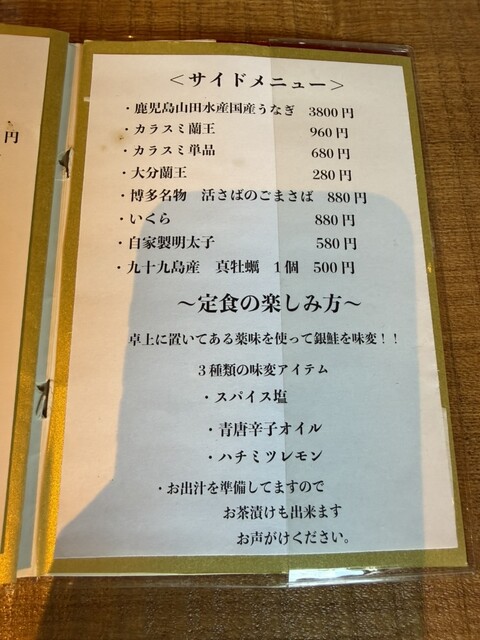 円
＜サイドメニュー＞
・鹿児島山田水産国産うなぎ 3800円
・カラスミ蘭王 960円
・カラスミ単品 680円
・大分蘭王 280円
・博多名物 活さばのごまさば 880円
・いくら 880円
・自家製明太子 580円
・九十九島産 真牡蠣 1個 500円
〜定食の楽しみ方〜
卓上に置いてある薬味を使って銀鮭を味変！！
3種類の味変アイテム
・スパイス塩
・青唐辛子オイル
・ハチミツレモン
・お出汁を準備してますので
お茶漬けも出来ます
お声がけください。